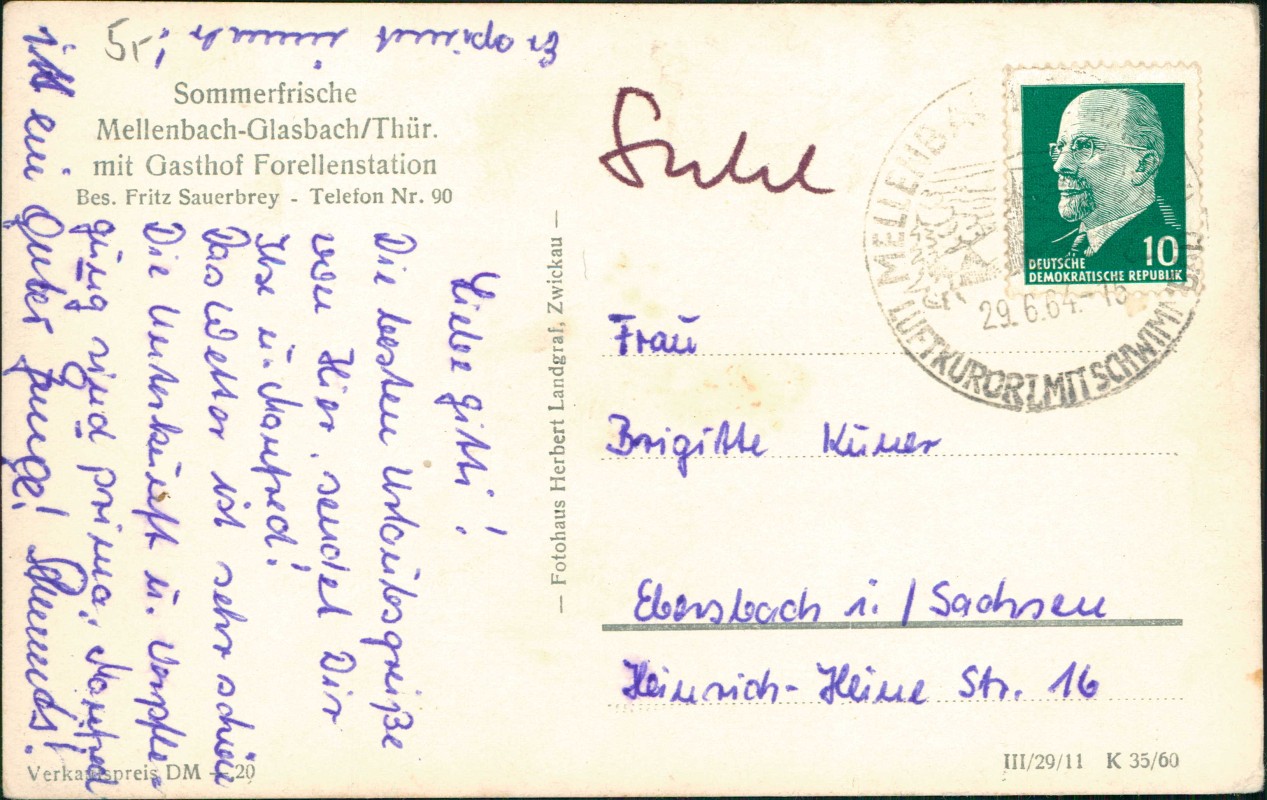 5,-
Sommerfrische
Mellenbach-Glasbach/Thür.
mit Gasthof Forellenstation
Bes. Fritz Sauerbrey - Telefon Nr. 90
Liebe Gitti!
Die besten Urlaubsgrüße
von Hier, sendet Dir
Ilse u. Manfred!
Das Wetter ist sehr schön
Die Unterkunft u. Verpfle-
gung sind prima. Manfred
ist ein guter Junge!
Er
— Fotohaus Herbert Landgraf, Zwickau —
Verkaufspreis DM -,20
Suhl
DEUTSCHE
DEMOKRATISCHE REPUBLIK
10
MELLENBA
29.6.64.-16
LUFTKURORT MIT SCHWIMM
Frau
Brigitte
Ebersbach i./Sachsen
Heinrich-Heine Str. 16
III/29/11 K 35/60